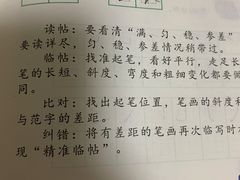 读帖：要看清“满、匀、稳、参差”
要读详尽，匀、稳、参差情况稍带过。
临帖：找准起笔，看好平行，走足长
笔的长短、斜度、弯度和粗细变化都要
同。
比对：找出起笔位置，笔画的斜度和
与范字的差距。
纠错：将有差距的笔画再次临写时
现“精准临帖”。